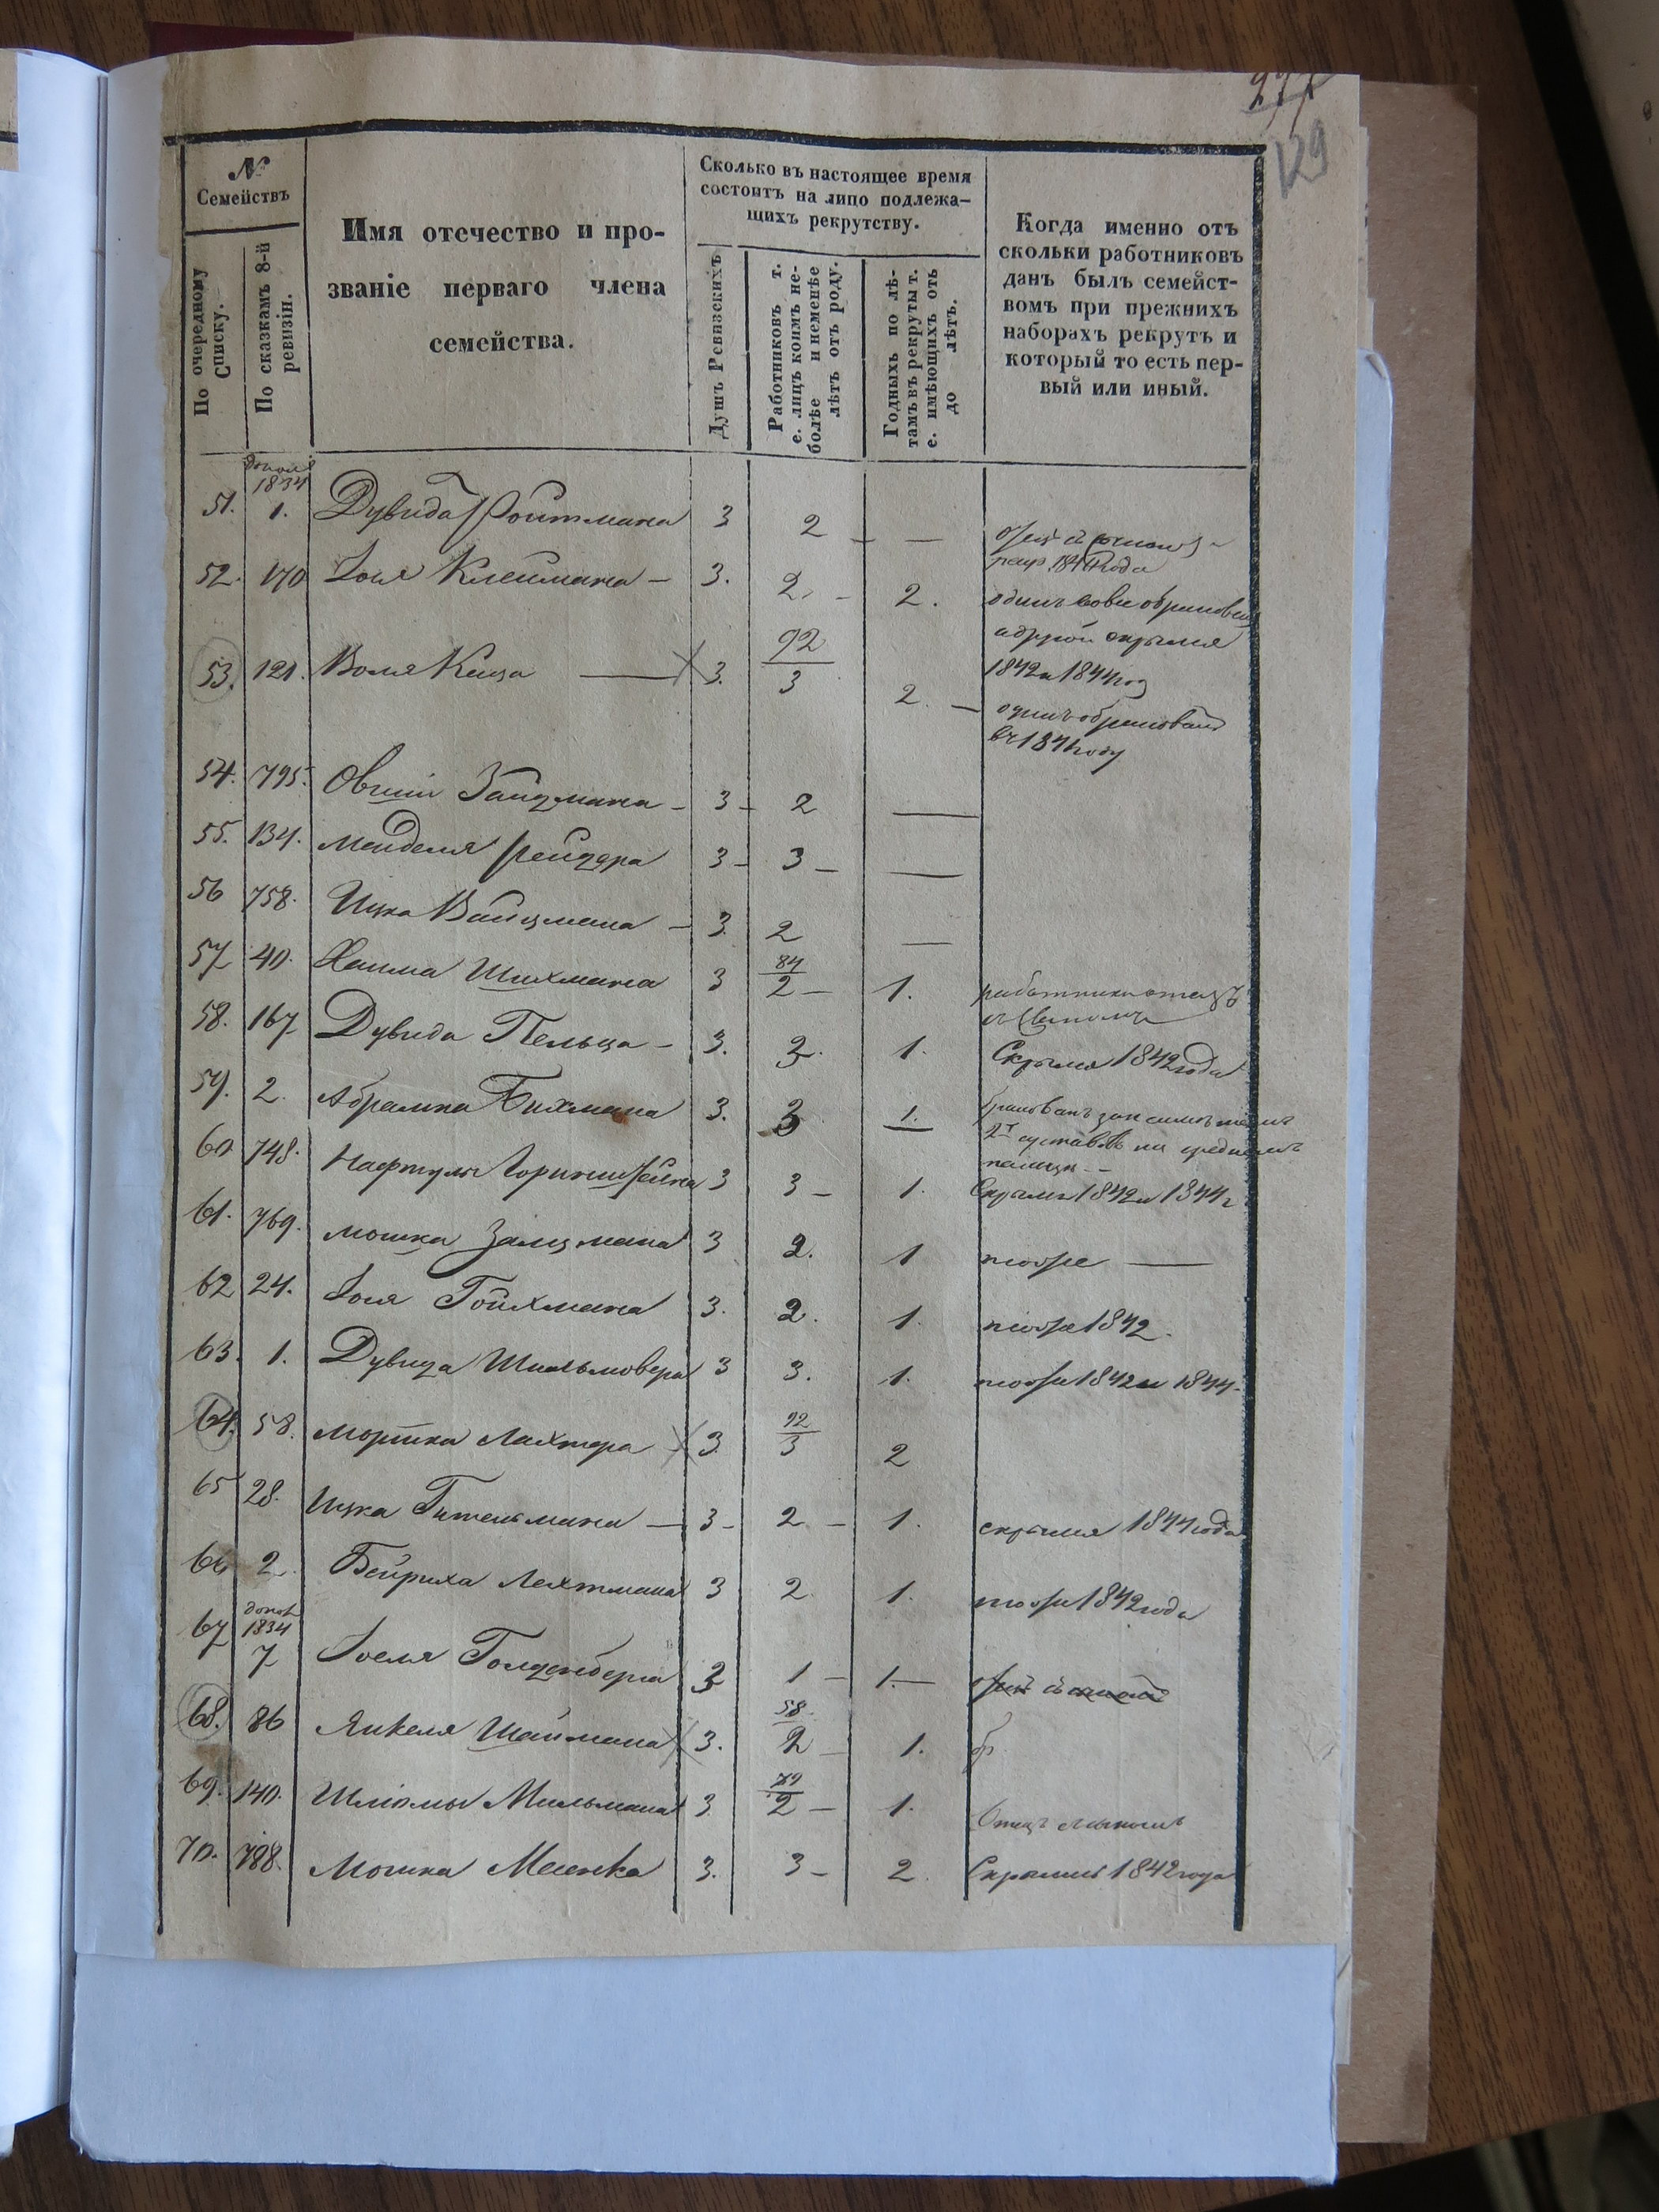 129
№
Семействъ
По очередному
Списку.
По сказкамъ 8-й
ревизіи.
Имя отчество и про-
званіе перваго члена
семейства.
Сколько въ настоящее время
состоитъ на лицо подлежа-
щихъ рекрутству.
Душъ Ревизскихъ
Работниковъ т.
е. лицъ коимъ не-
болѣе и неменѣе
лѣтъ отъ роду.
Годныхъ по лѣ-
тамъ въ рекруты т.
е. имѣющихъ отъ
до лѣтъ.
Когда именно отъ
сколькихъ работниковъ
данъ былъ семейст-
вомъ при прежнихъ
наборахъ рекрутъ и
который то есть пер-
вый или иный.
1834
51. 1. Дувида Ройтмана 3 2 —
года
52. 170 Іоля Клеймана — 3. 2. — 2. одинъ
а другой скрылся
92
53. 121. Воля Каца — 3. 3 2. — 1842 и 1844 год
одинъ обракованъ
въ 184 году
54. 795. Овшія Зайдмана — 3 — 2 —
55. 134. Менделя 3 — 3 — —
56 758. Ицка Вайцмана — 3. 2 —
84
57 40. Хаима Шихмана 3 2 — 1. работники отецъ
съ сыномъ
58. 167 Дувида Пельца — 3. 2. 1. Скрылся 1842 года
59. 2. Абрамка Бихмана 3. 3 1.
60 748. Нафтулы Горинштейна 3 3 — 1. Скрылся 1842 и 1844 г
61. 769. Мошка Залцмана 3 2. 1 тоже —
62 24. Іоля Гойхмана 3. 2. 1. тоже 1842.
63. 1. Дувида 3 3. 1. тоже 1842 и 1844.
92
64. 58. Мортка Лахтера 3. 3 2
65 28. Ицка Гительмана — 3 — 2 — 1. скрылся 1844 года
66 2. Бейриха Лехтмана 3 2 1. тоже 1842 года
1834
67 7 Іоеля Голденберга 3 1 — 1. —
58
68. 86 Янкеля Шаймана 3. 2 — 1.
79
69. 140. Шліомы Мильмана 3. 2 — 1. Отецъ съ сыномъ
70. 788. Мошка 3. 3 — 2. Скрылся 1842 года